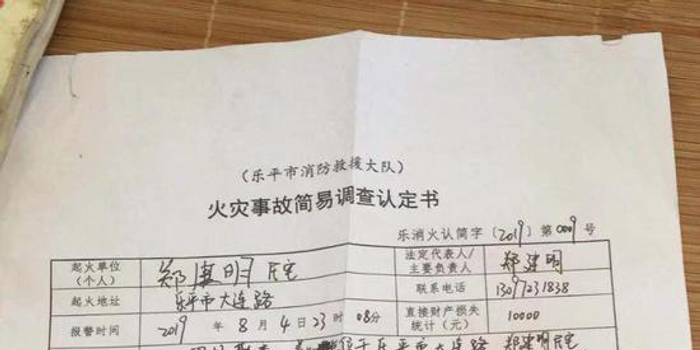 （乐平市消防救援大队）
火灾事故简易调查认定书
乐消火认简字〔2019〕第0009号
起火单位（个人） 郑建明住宅 法定代表人/主要负责人 郑建明
起火地址 乐平市大连路 联系电话 13097231838
报警时间 2019年8月4日23时08分 直接财产损失统计（元） 10000
位于乐平市大连路 郑建明住宅